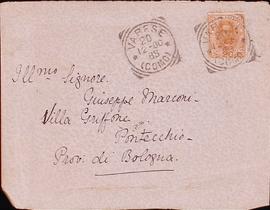 VARESE
20
12-86
85
(COMO)
Ill.mo Signore.
Giuseppe Marconi.
Villa Griffone
Pontecchio
Prov. di Bologna.